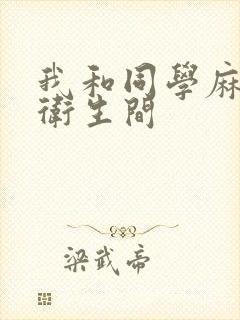 我和同學麻
衛生間
梁武帝